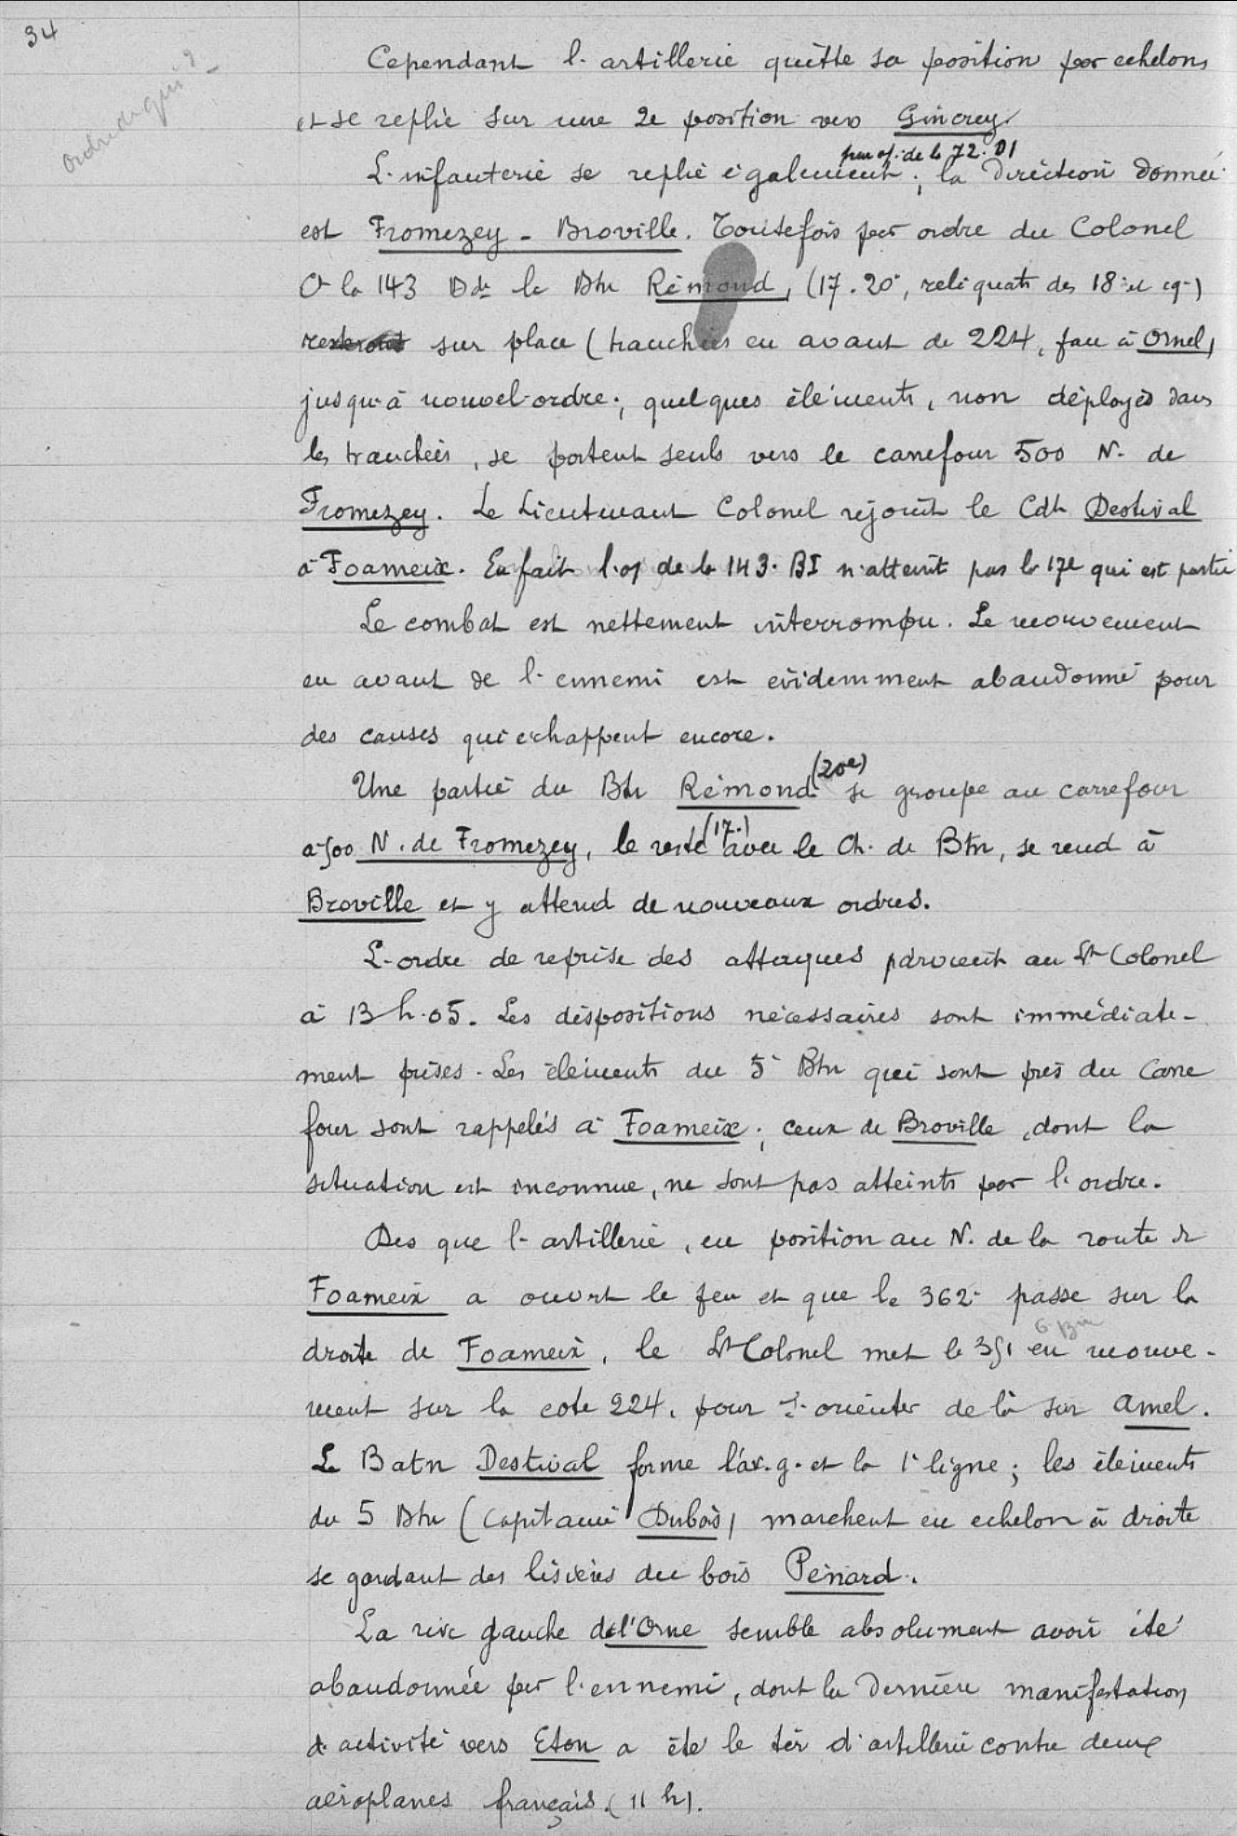 34
ordre de qui ?
Cependant l'artillerie quitte sa position par echelons
et se replie sur une 2e position vers Gincrey.
par of. de la 72. DI
L'infanterie se replie également ; la Direction donnée
est Fromezey - Broville. Toutefois par ordre du Colonel
Ct la 143 Bde le Btn Rémond, (17. 20e, reliquats des 18e et 19e)
sur place (tranchées en avant de 224, face à Ornel)
jusqu'à nouvel ordre ; quelques éléments, non déployés dans
les tranchées, se portent seuls vers le carrefour 500 N. de
Fromezey. Le Lieutenant Colonel rejoint le Cdt Destival
à Foameix. En fait l'of de la 143. BI n'atteint pas la 17e qui est partie
Le combat est nettement interrompu. Le mouvement
en avant de l'ennemi est évidemment abandonné pour
des causes qui echappent encore.
Une partie du Btn Rémond (20e) se groupe au carrefour
à 500 N. de Fromezey, le reste (17.) avec le Ch. de Btn, se rend à
Broville et y attend de nouveaux ordres.
L'ordre de reprise des attaques parvient au Lt Colonel
à 13 h. 05. Les dispositions nécessaires sont immédiate-
ment prises. Les éléments du 5e Btn qui sont près du Carre
four sont rappelés à Foameix ; ceux de Broville, dont la
situation est inconnue, ne sont pas atteints par l'ordre.
Des que l'artillerie, en position au N. de la route de
Foameix a ouvert le feu et que le 362e passe sur la
6 Bin
droite de Foameix, le Lt Colonel met le 351 en mouve-
ment sur la cote 224, pour s'orienter de là sur Amel.
Le Batn Destival forme l'av. g. et la 1e ligne ; les éléments
du 5 Btn (Capitaine Dubois) marchent en echelon à droite
se gardant des lisières du bois Pénard.
La rive gauche de l'Orne semble absolument avoir été
abandonnée par l'ennemi, dont la Dernière manifestation
d'activité vers Eton a été le tir d'artillerie contre deux
aéroplanes français. (11 h).